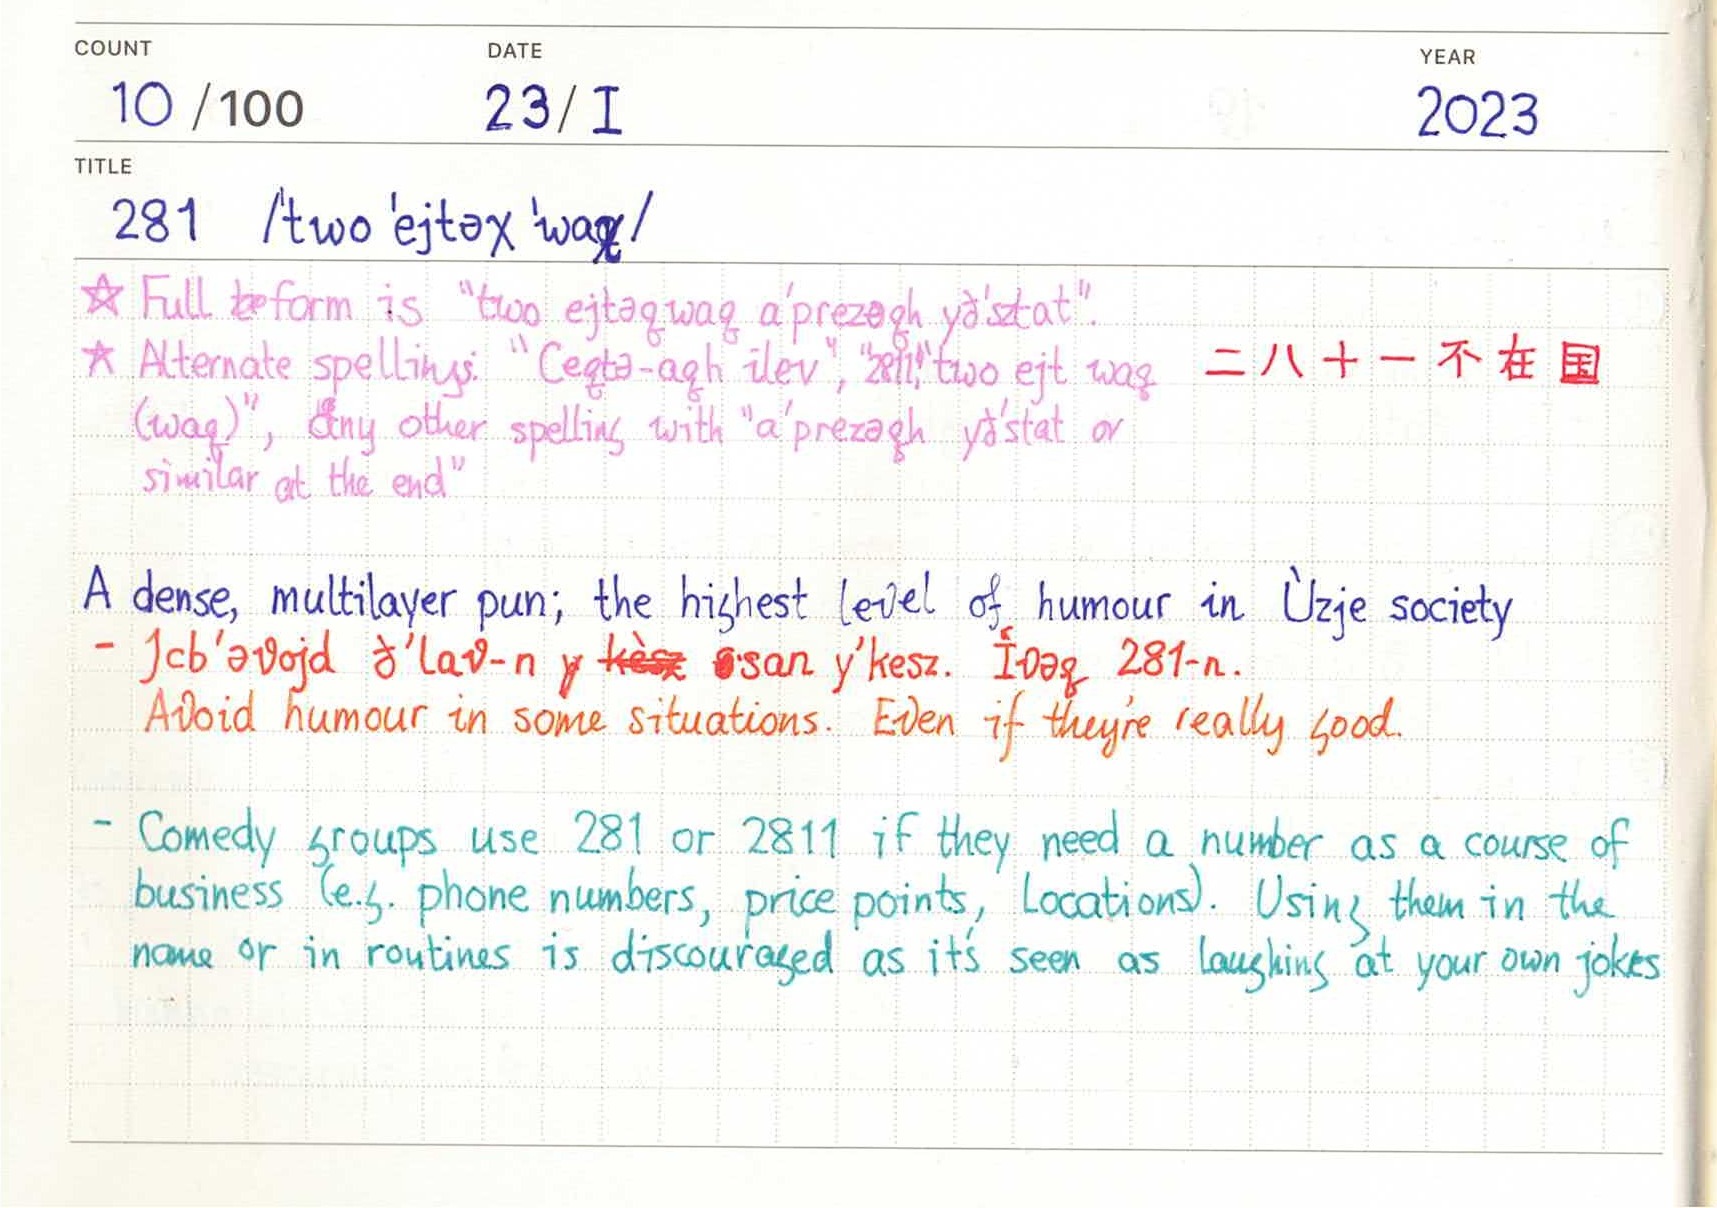 COUNT DATE YEAR
10 /100 23/I 2023
TITLE
281 /'two 'ejtəχ 'waχ/
☆ Full form is "two ejtəqwaq a'prezəgh yð'stat".
☆ Alternate spellings: "Ceqtə-aqh ilev", "2811", "two ejt waq 二八十一不在国
(waq)", Any other spelling with "a'prezəgh yð'stat or
similar at the end"
A dense, multilayer pun; the highest level of humour in Ùzje society
- Jcb'əvojd ð'lav-n y san y'kesz. Ívəq 281-n.
Avoid humour in some situations. Even if they're really good.
- Comedy groups use 281 or 2811 if they need a number as a course of
business (e.g. phone numbers, price points, locations). Using them in the
name or in routines is discouraged as it's seen as laughing at your own jokes